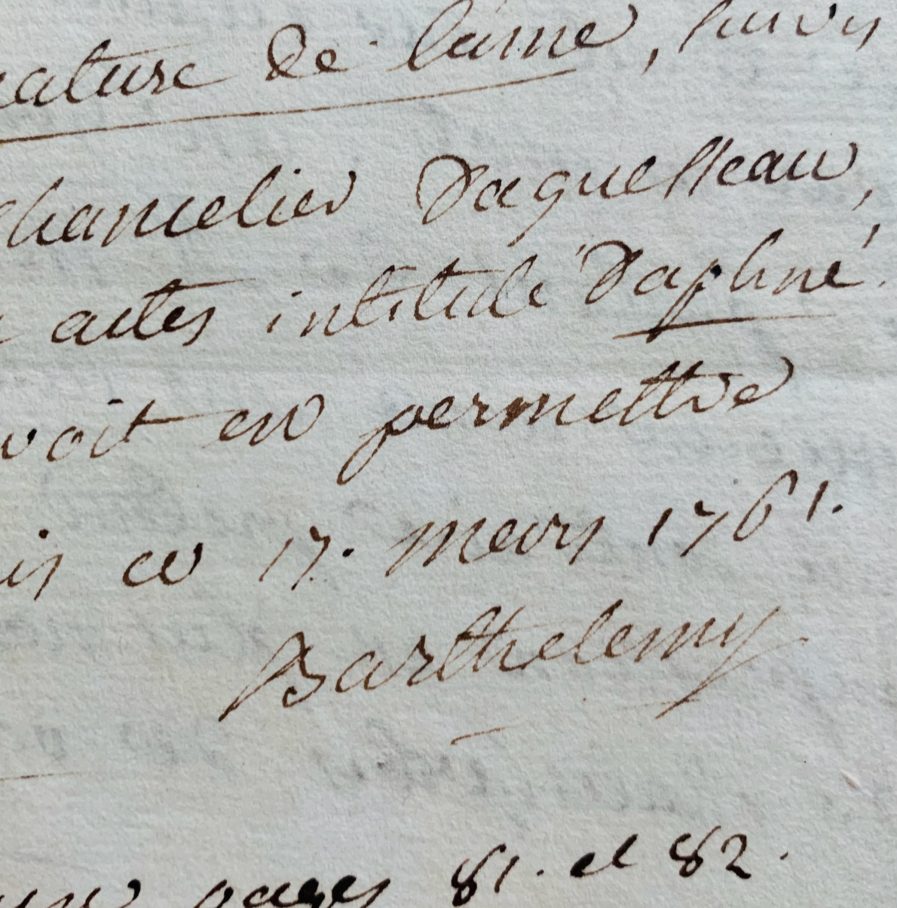 ature de l'ame, suivi
chancelier Daguesseau,
actes intitulé Daphné.
voit en permettre
is ce 17. mars 1761.
Barthelemy
pages 81. et 82.